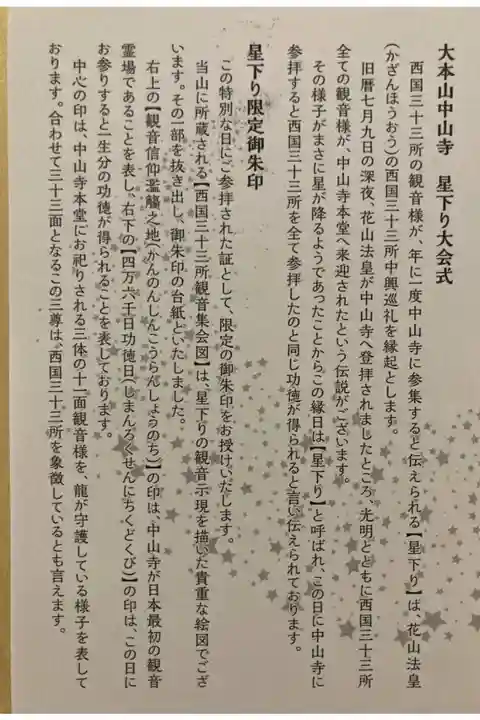 大本山中山寺　星下り大会式
西国三十三所の観音様が、年に一度中山寺に参集すると伝えられる【星下り】は、花山法皇
(かざんほうおう)の西国三十三所中興巡礼を縁起とします。
旧暦七月九日の深夜、花山法皇が中山寺へ登拝されましたところ、光明とともに西国三十三所
全ての観音様が、中山寺本堂へ来迎されたという伝説がございます。
その様子がまさに星が降るようであったことからこの縁日は【星下り】と呼ばれ、この日に中山寺に
参拝すると西国三十三所を全て参拝したのと同じ功徳が得られると言い伝えられております。
星下り限定御朱印
この特別な日にご参拝された証として、限定の御朱印をお授けいたします。
当山に所蔵される【西国三十三所観音集会図】は、星下りの観音示現を描いた貴重な絵図でござ
います。その一部を抜き出し、御朱印の台紙といたしました。
右上の【観音信仰濫觴之地(かんのんしんこうらんしょうのち)】の印は、中山寺が日本最初の観音
霊場であることを表し、右下の【四万六千日功徳日(しまんろくせんにちくどくび)】の印は、この日に
お参りすると一生分の功徳が得られることを表しております。
中心の印は、中山寺本堂にお祀りされる三体の十一面観音様を、龍が守護している様子を表して
おります。合わせて三十三面となるこの三尊は、西国三十三所を象徴しているとも言えます。